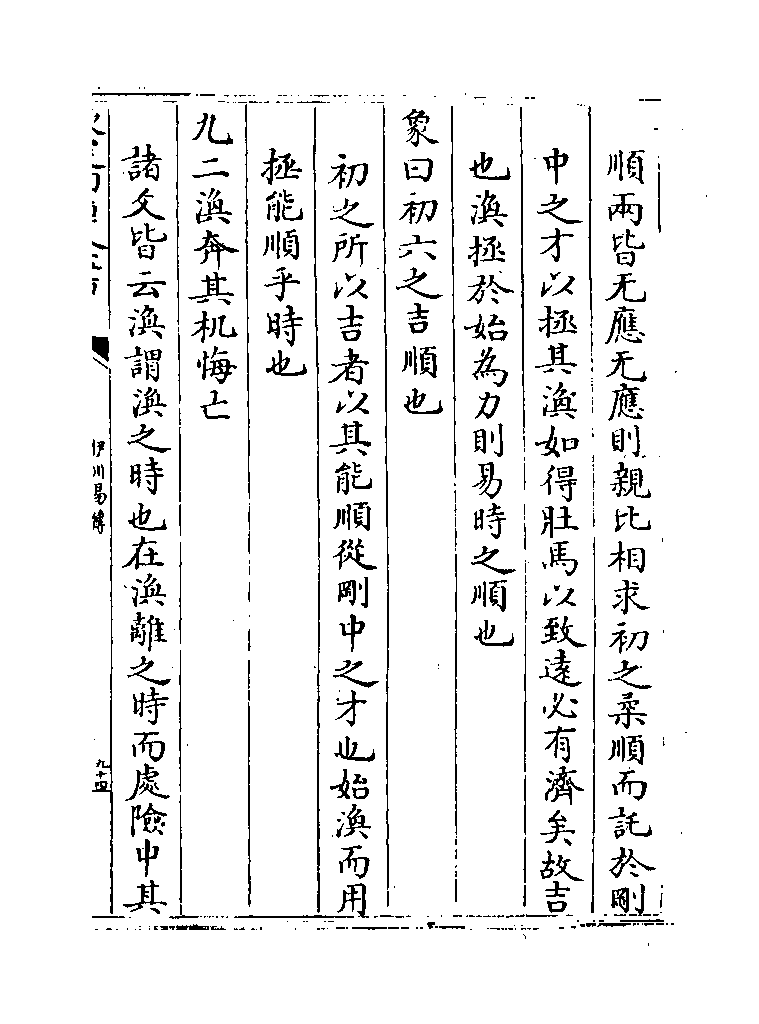 順兩皆无應无應則親比相求初之柔順而託於剛
中之才以拯其渙如得壯馬以致遠必有濟矣故吉
也渙拯於始為力則易時之順也
象曰初六之吉順也
初之所以吉者以其能順從剛中之才也始渙而用
拯能順乎時也
九二渙奔其机悔亡
諸爻皆云渙謂渙之時也在渙離之時而處險中其
伊川易傳
九十四